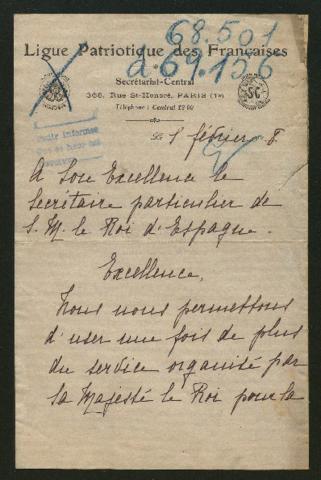 68.501
Ligue Patriotique des Françaises
d. 69.156
Secrétariat-Central
368, Rue St-Honoré, PARIS (1er)
Téléphone : Central
SC
Le 1 février
A Son Excellence le
Secrétaire particulier de
S. M. le Roi d'Espagne.
Excellence,
Nous nous permettons
d'user une fois de plus
du service organisé par
Sa Majesté le Roi pour la